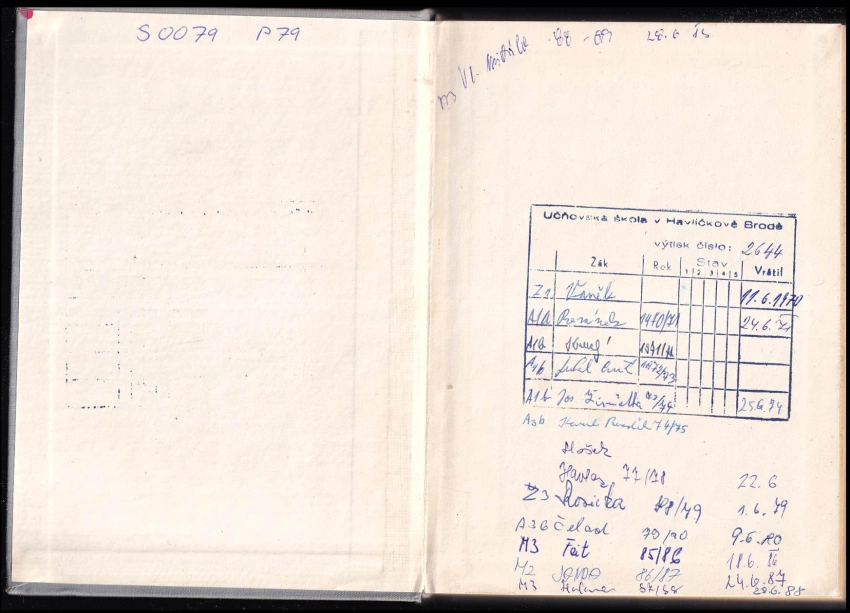 S0079 P79
M3 Vl. 88-89 28.6
Učňovská škola v Havlíčkově Brodě
výtisk číslo: 2644
Žák Rok Stav 1 2 3 4 5 Vrátil
Z1 Vaněk 11.6.1970
A1a 1970/71 24.6.71
A1b 1971/72
A1b 1972/73
A1b Jos 73/74 25.6.74
A3b Karel 74/75
Hošek
77/78 22.6
Z3 Kosička 78/79 1.6.79
A3b Čeload 79/80 9.6.80
M3 Fát 85/86 18.6.86
M2 JANDA 86/87 24.6.87
M3 87/88 28.6.88